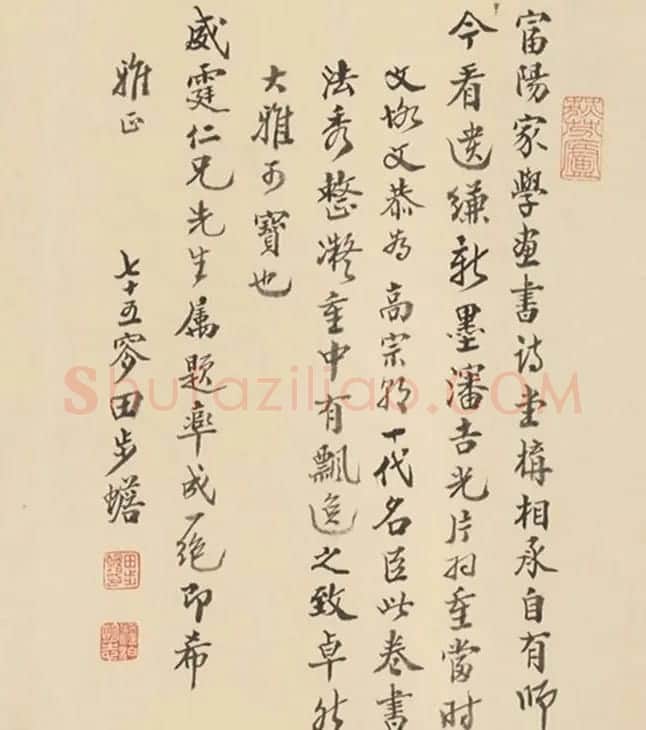 富陽家學畫書詩堂構相承自有師
今看遺縑新墨瀋吉光片羽重當時
文恪文恭為高宗朝十代名臣此卷書
法秀整凝重中有飄逸之致卓然
大雅可寶也
威霆仁兄先生属題率成一绝即希
雅正
七十五田步蟾
Shufaziliao.COM